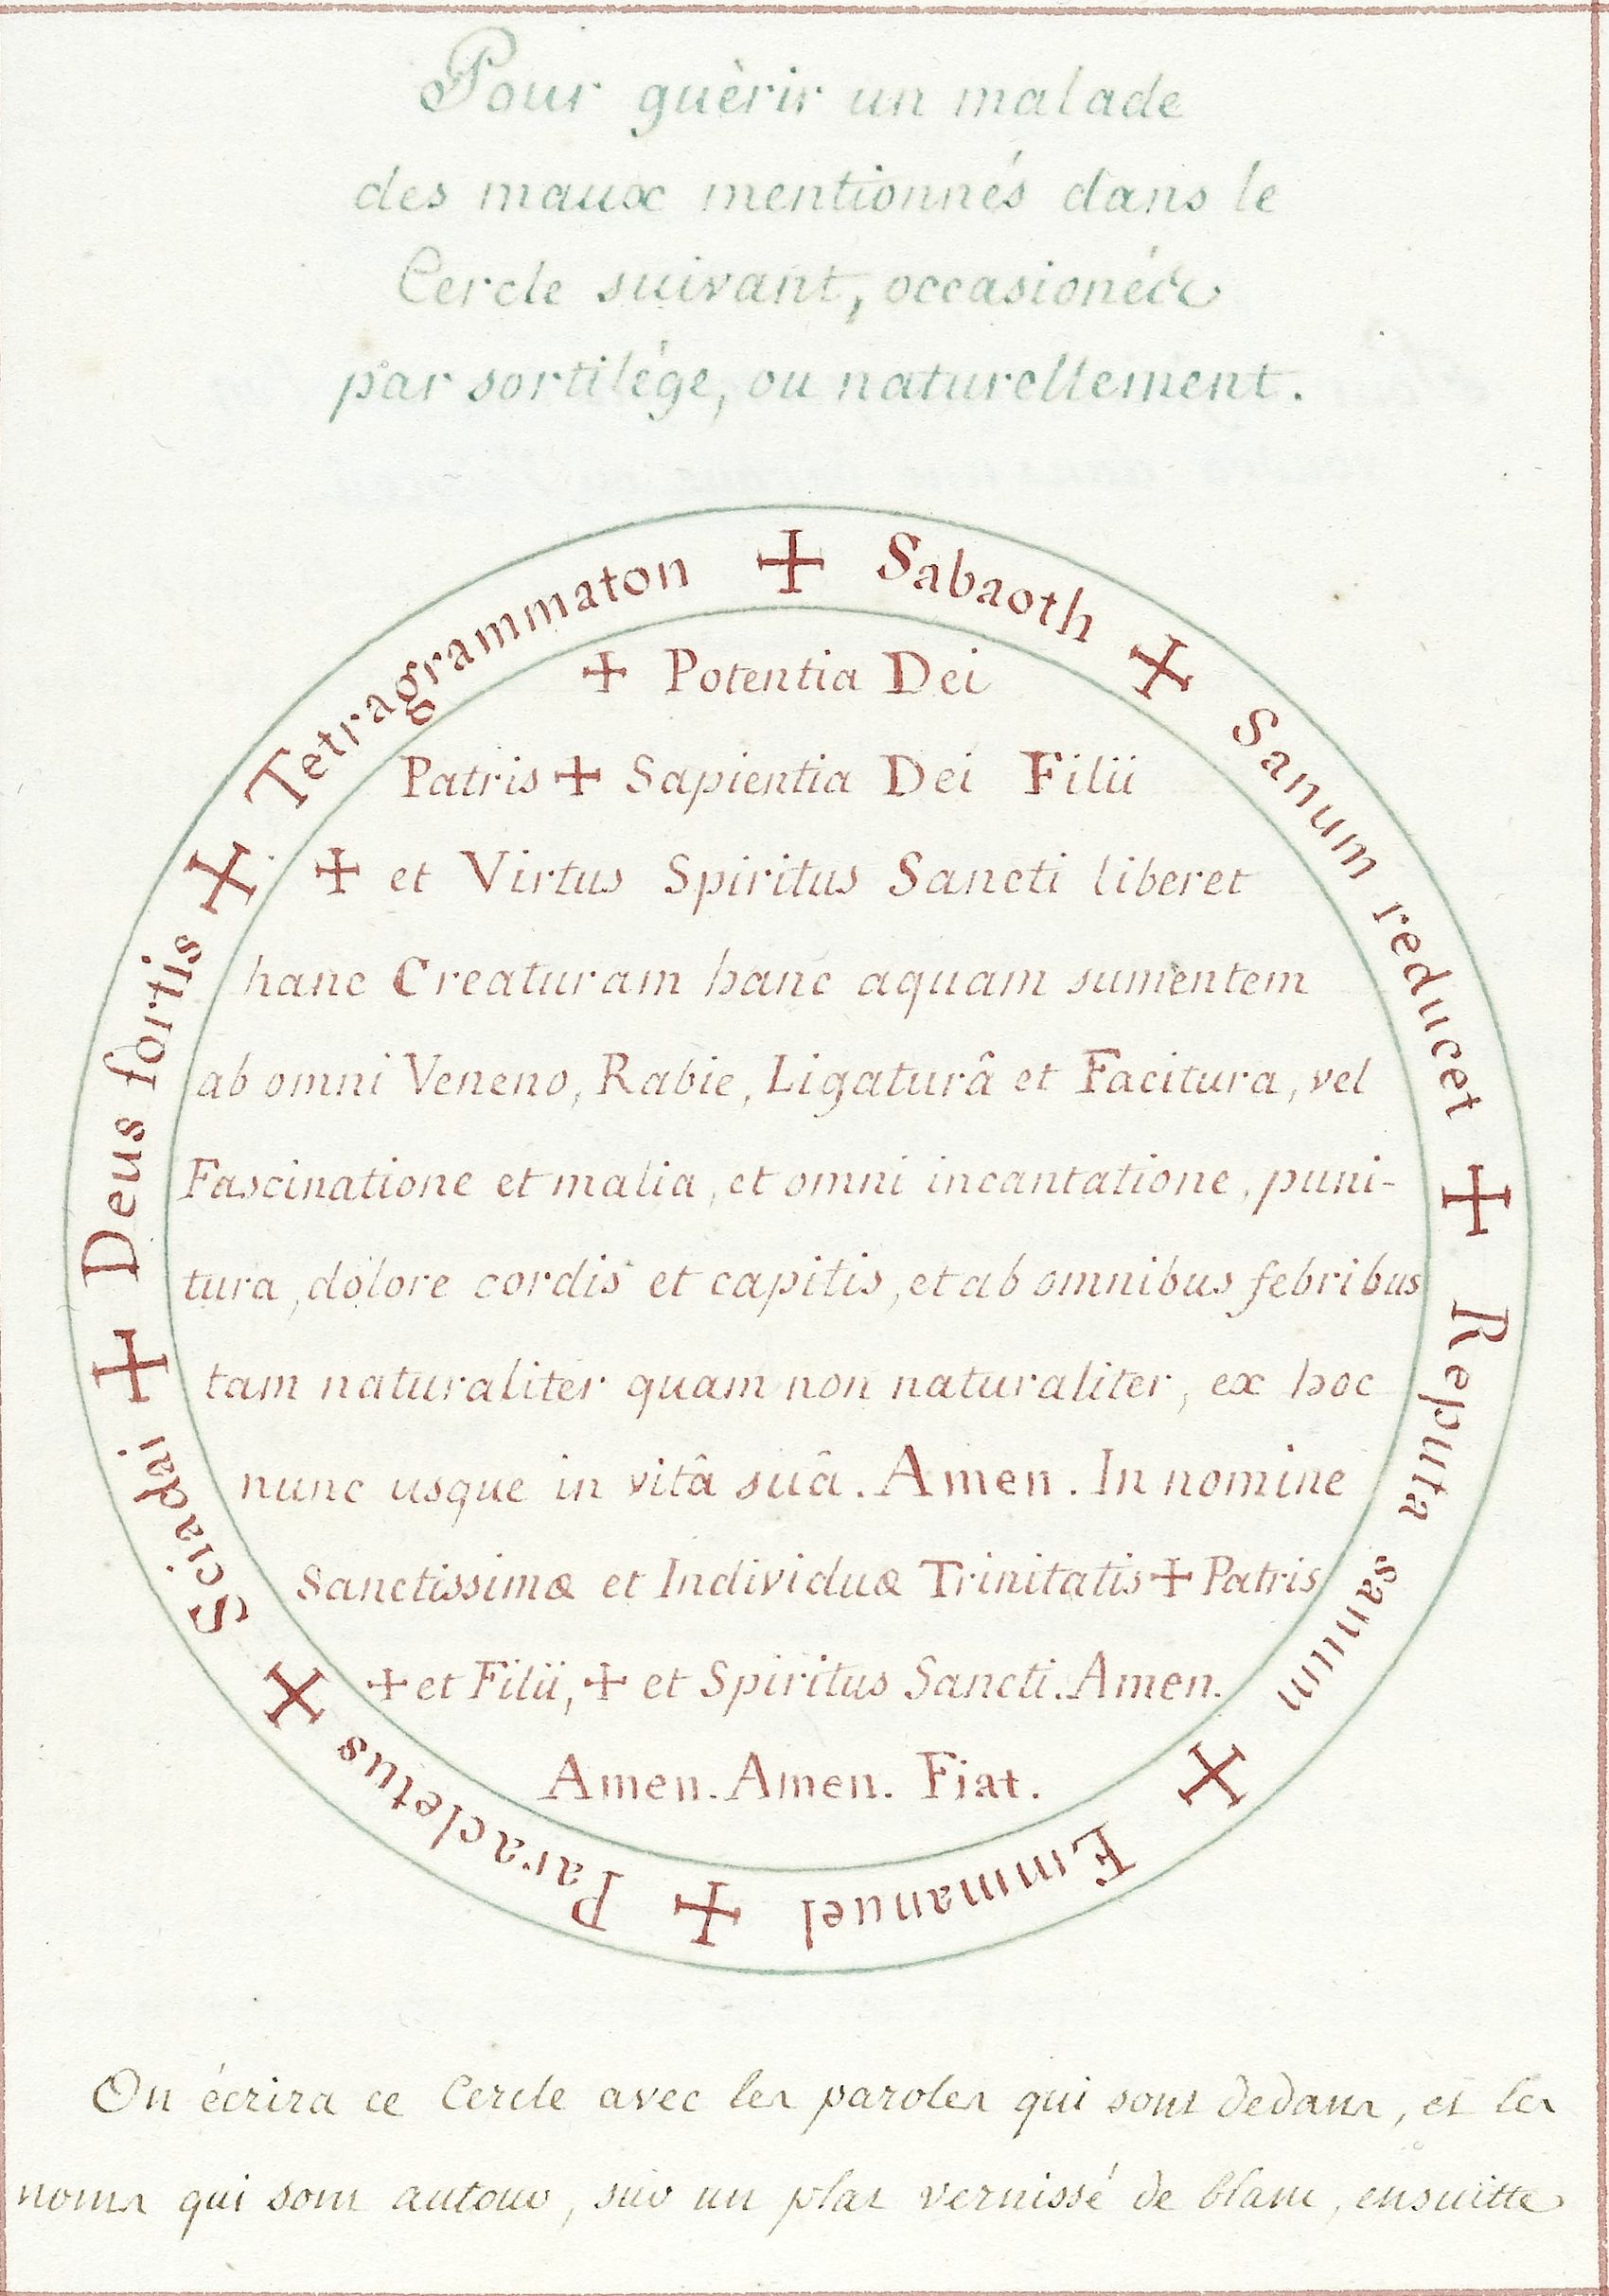 Pour guèrir un malade
des maux mentionnés dans le
Cercle suivant, occasionéee
par sortilége, ou naturellement.
✠ Sabaoth ✠ Sanum reducet ✠ Reputa sanum ✠ Emmanuel ✠ Paracletus ✠ Sciadai ✠ Deus fortis ✠ Tetragrammaton
✠ Potentia Dei
Patris ✠ Sapientia Dei Filii
✠ et Virtus Spiritus Sancti liberet
hanc Creaturam hanc aquam sumentem
ab omni Veneno, Rabie, Ligaturâ et Facitura, vel
Fascinatione et malia, et omni incantatione, puni-
tura, dolore cordis et capitis, et ab omnibus febribus
tam naturaliter quam non naturaliter, ex hoc
nunc usque in vitâ suâ. Amen. In nomine
Sanctissimæ et Individuæ Trinitatis ✠ Patris
✠ et Filii, ✠ et Spiritus Sancti. Amen.
Amen. Amen. Fiat.
On écrira ce Cercle avec les paroles qui sont dedans, et les
noms qui sont autour, sur un plat vernissé de blanc, ensuitte